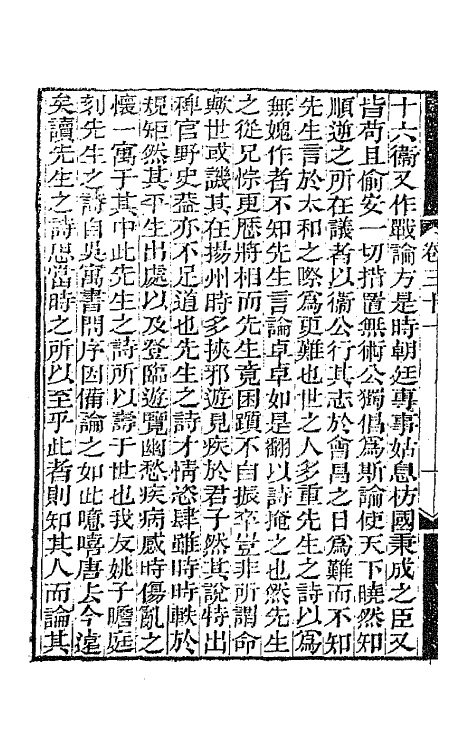 十六衞又作戰論方是時朝廷專事姑息枋國秉成之臣又
皆苟且偷安一切措置無術公獨倡爲斯論使天下曉然知
順逆之所在議者以衞公行其志於會昌之日爲難而不知
先生言於太和之際爲更難也世之人多重先生之詩以爲
無媿作者不知先生言論卓卓如是翻以詩掩之也然先生
之從兄悰更歷將相而先生竟困躓不自振卒豈非所謂命
歟世或譏其在揚州時多挾邪遊見疾於君子然其說特出
稗官野史葢亦不足道也先生之詩才情恣肆雖時時軼於
規矩然其平生出處以及登臨遊覽幽愁疾病感時傷亂之
懷一寓于其中此先生之詩所以壽于世也我友姚子瞻庭
刻先生之詩自吳寓書問序因備論之如此噫嘻唐去今遠
矣讀先生之詩思當時之所以至乎此者則知其人而論其
卷三十一